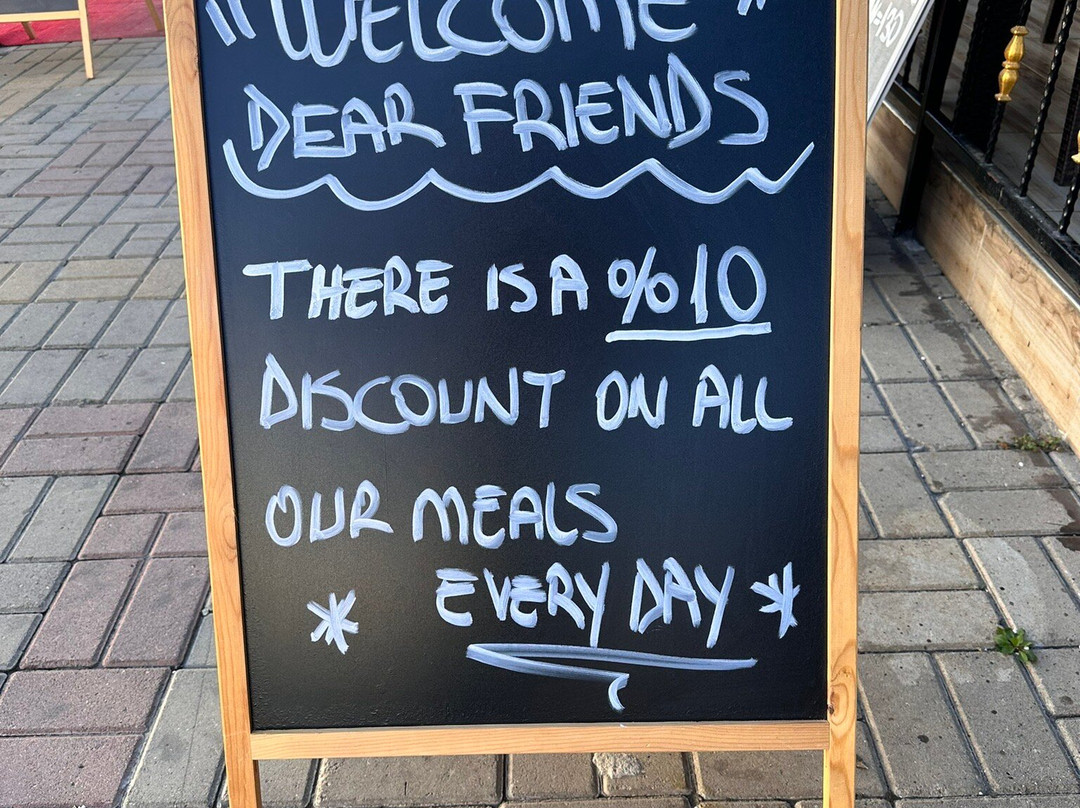 "WELCOME"
DEAR FRIENDS
THERE IS A %10
DISCOUNT ON ALL
OUR MEALS
* EVERY DAY *